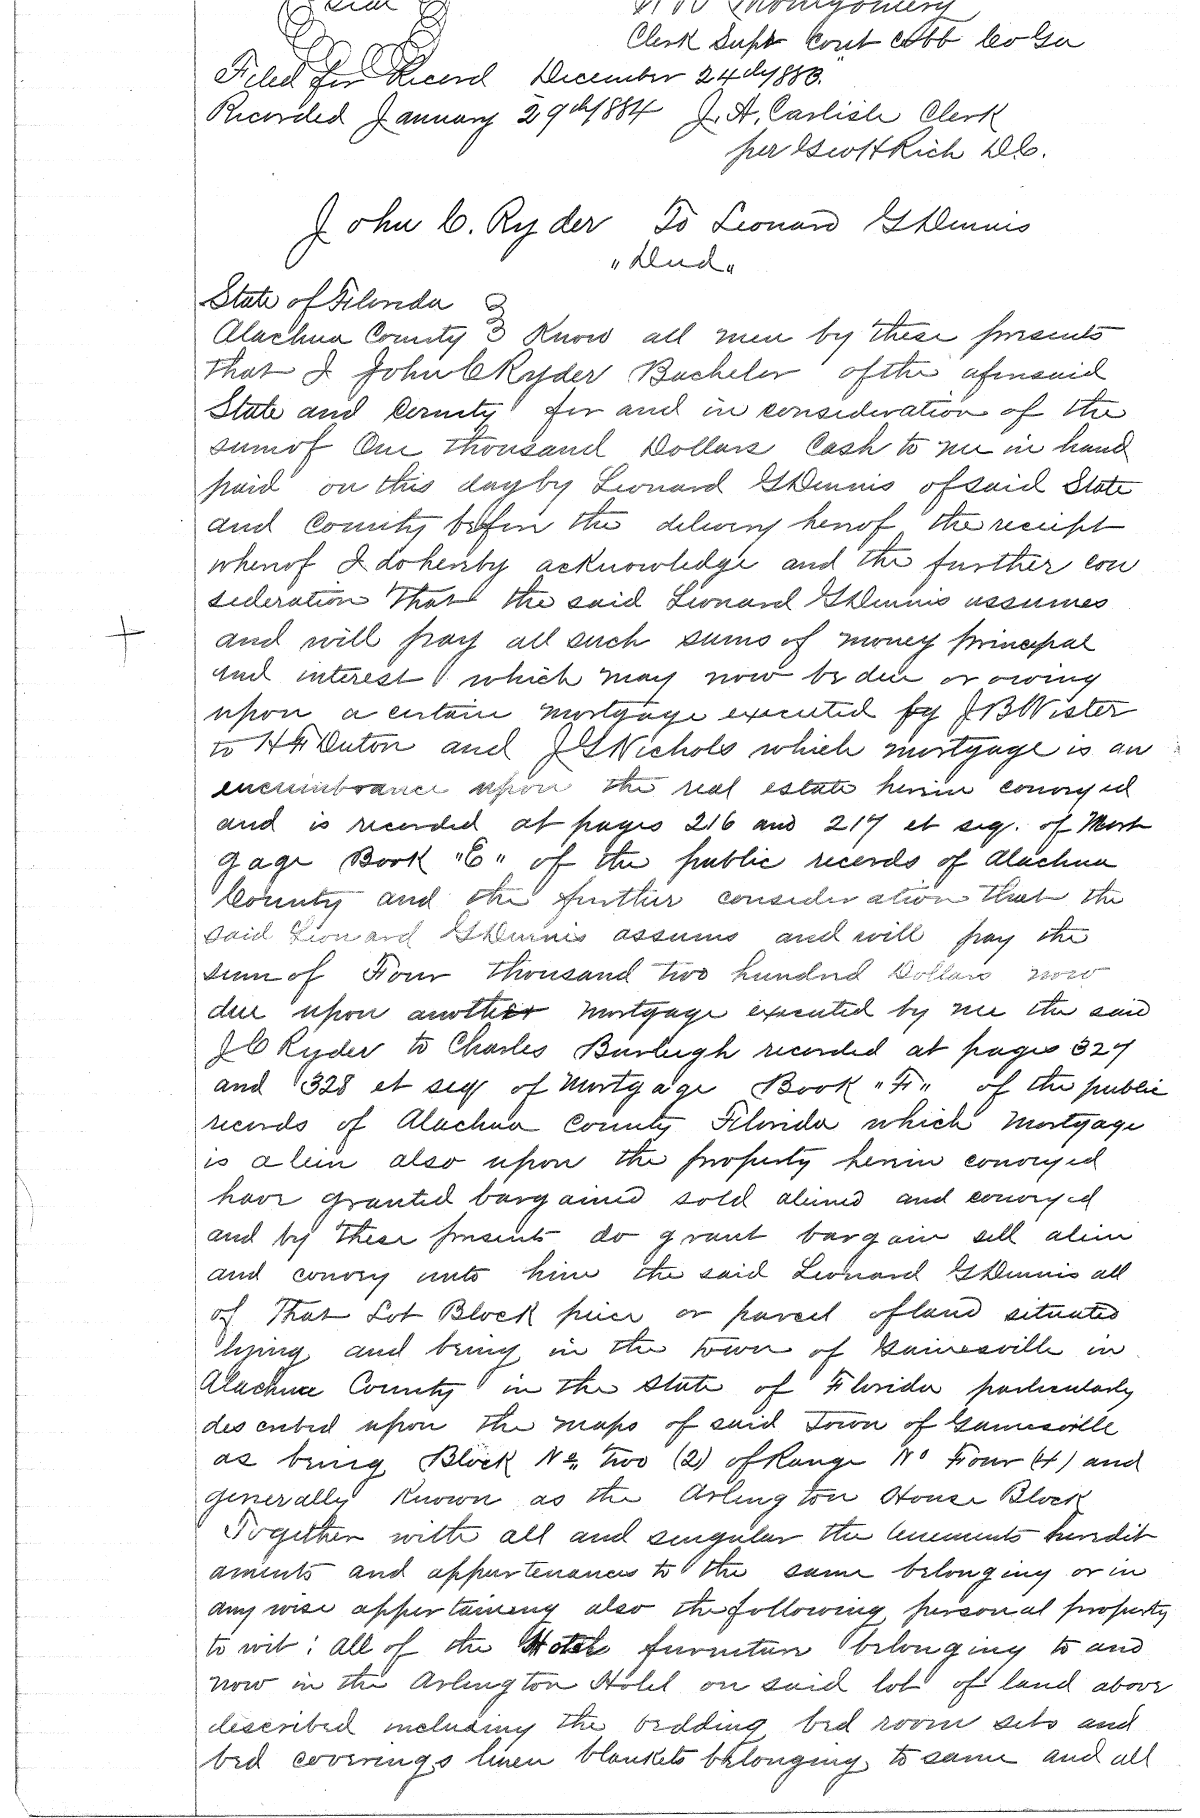 Seal
W R Montgomery
Clerk Supr Court Cobb Co Ga
Filed for Record December 24th 1883.
Recorded January 29th 1884 J. A. Carlisle Clerk
per Geo H Rich D.C.
John C. Ryder To Leonard G Dennis
"Deed"
State of Florida
Alachua County Know all men by these presents
that I John C Ryder Bachelor of the aforesaid
State and County for and in consideration of the
sum of One thousand Dollars Cash to me in hand
paid on this day by Leonard G Dennis of said State
and County before the delivery hereof the receipt
whereof I do hereby acknowledge and the further con
sideration that the said Leonard G Dennis assumes
and will pay all such sums of money principal
and interest which may now be due or owing
upon a certain mortgage executed by J B Wister
to H F Duton and J G Nichols which mortgage is an
encumbrance upon the real estate herein conveyed
and is recorded at pages 216 and 217 et seq. of Mort
gage Book "E" of the public records of Alachua
County and the further consideration that the
said Leonard G Dennis assums and will pay the
sum of Four thousand two hundred Dollars now
due upon another mortgage executed by me the said
J C Ryder to Charles Burleigh recorded at pages 327
and 328 et seq of Mortgage Book "F" of the public
records of Alachua County Florida which mortgage
is a lein also upon the property herein conveyed
have granted bargained sold aliened and conveyed
and by these presents do grant bargain sell alien
and convey unto him the said Leonard G Dennis all
of That Lot Block piece or parcel of land situated
lying and being in the town of Gainesville in
Alachua County in the State of Florida particularly
described upon the maps of said Town of Gainesville
as being Block No. two (2) of Range No Four (4) and
generally known as the Arlington House Block
Together with all and singular the tenements heredit
aments and appurtenances to the same belonging or in
any wise appertaining also the following personal property
to wit: all of the Hotel furniture belonging to and
now in the Arlington Hotel on said lot of land above
described including the bedding bed room sets and
bed coverings linen blankets belonging to same and all